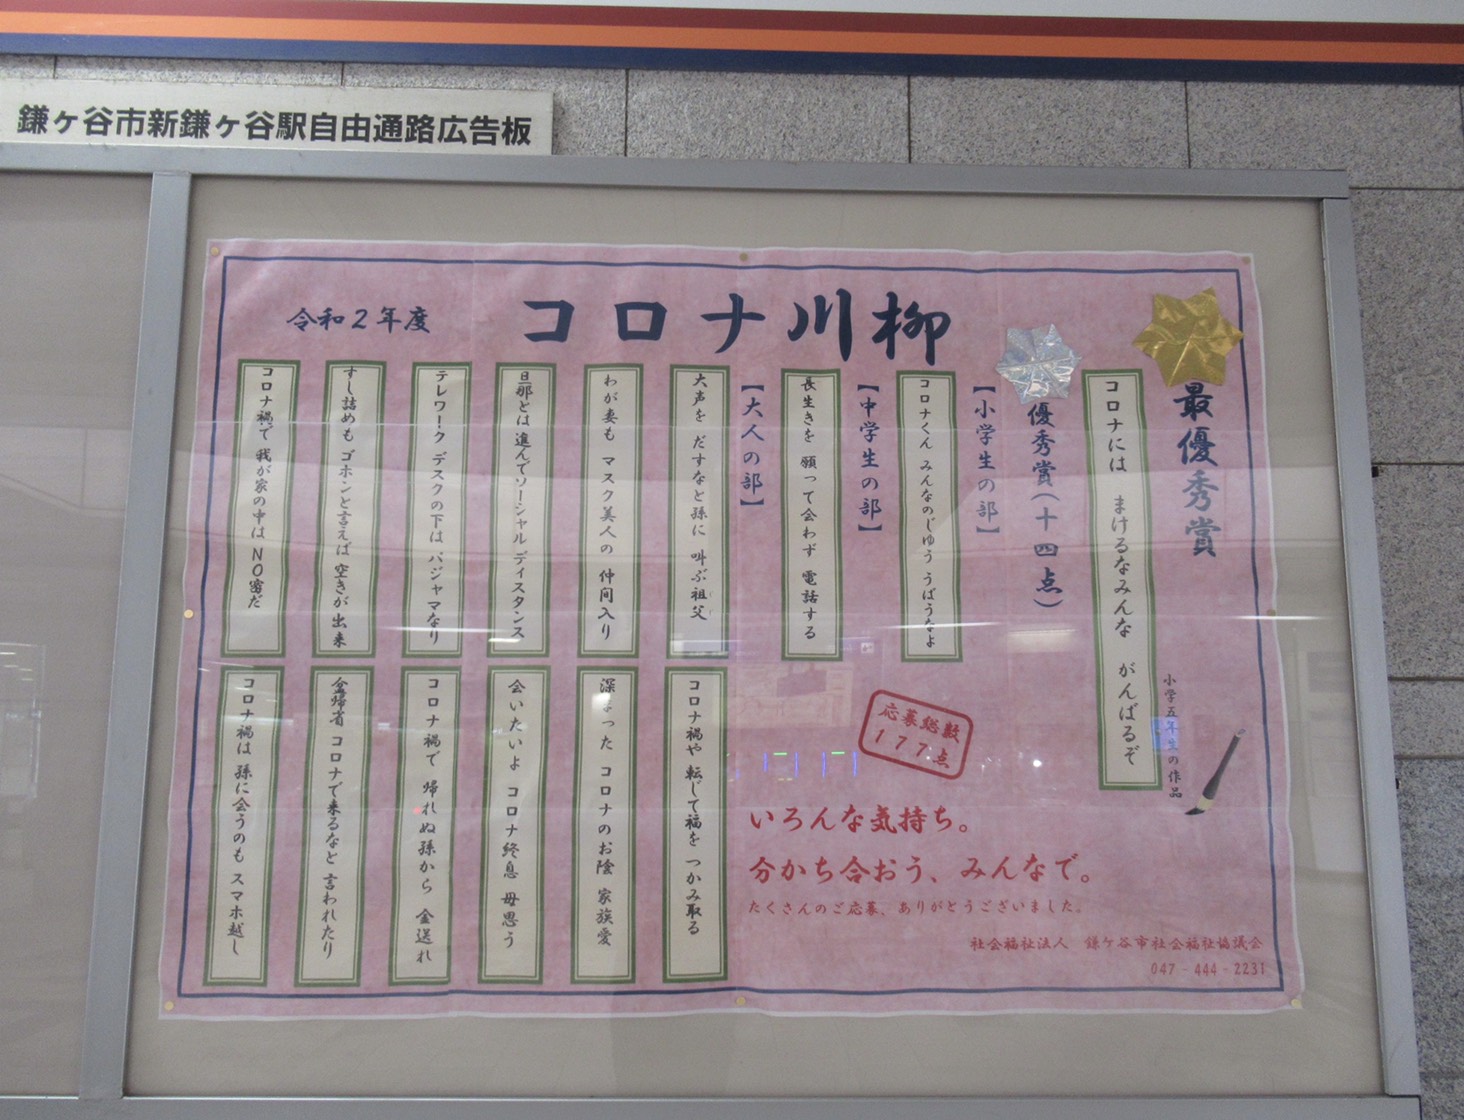 鎌ヶ谷市新鎌ヶ谷駅自由通路広告板
令和2年度
コロナ川柳
最優秀賞
コロナには まけるなみんな がんばるぞ
小学五年生の作品
優秀賞(十四点)
【小学生の部】
コロナくん みんなのじゆう うばうなよ
【中学生の部】
長生きを 願って会わず 電話する
【大人の部】
大声を だすなと孫に 叫ぶ祖父
わが妻も マスク美人の 仲間入り
旦那とは 進んでソーシャル ディスタンス
テレワーク デスクの下は パジャマなり
すし詰めも ゴホンと言えば 空きが出来
コロナ禍で 我が家の中は NO密だ
コロナ禍や 転じて福を つかみ取る
深まった コロナのお陰 家族愛
会いたいよ コロナ終息 毎思う
盆帰省 コロナで来るなと 言われたり
コロナ禍で 帰れぬ孫から 金送れ
コロナ禍は 孫に会うのも スマホ越し
応募総数
177点
いろんな気持ち。
分かち合おう、みんなで。
たくさんのご応募、ありがとうございました。
社会福祉法人 鎌ケ谷市社会福祉協議会
047-444-2231